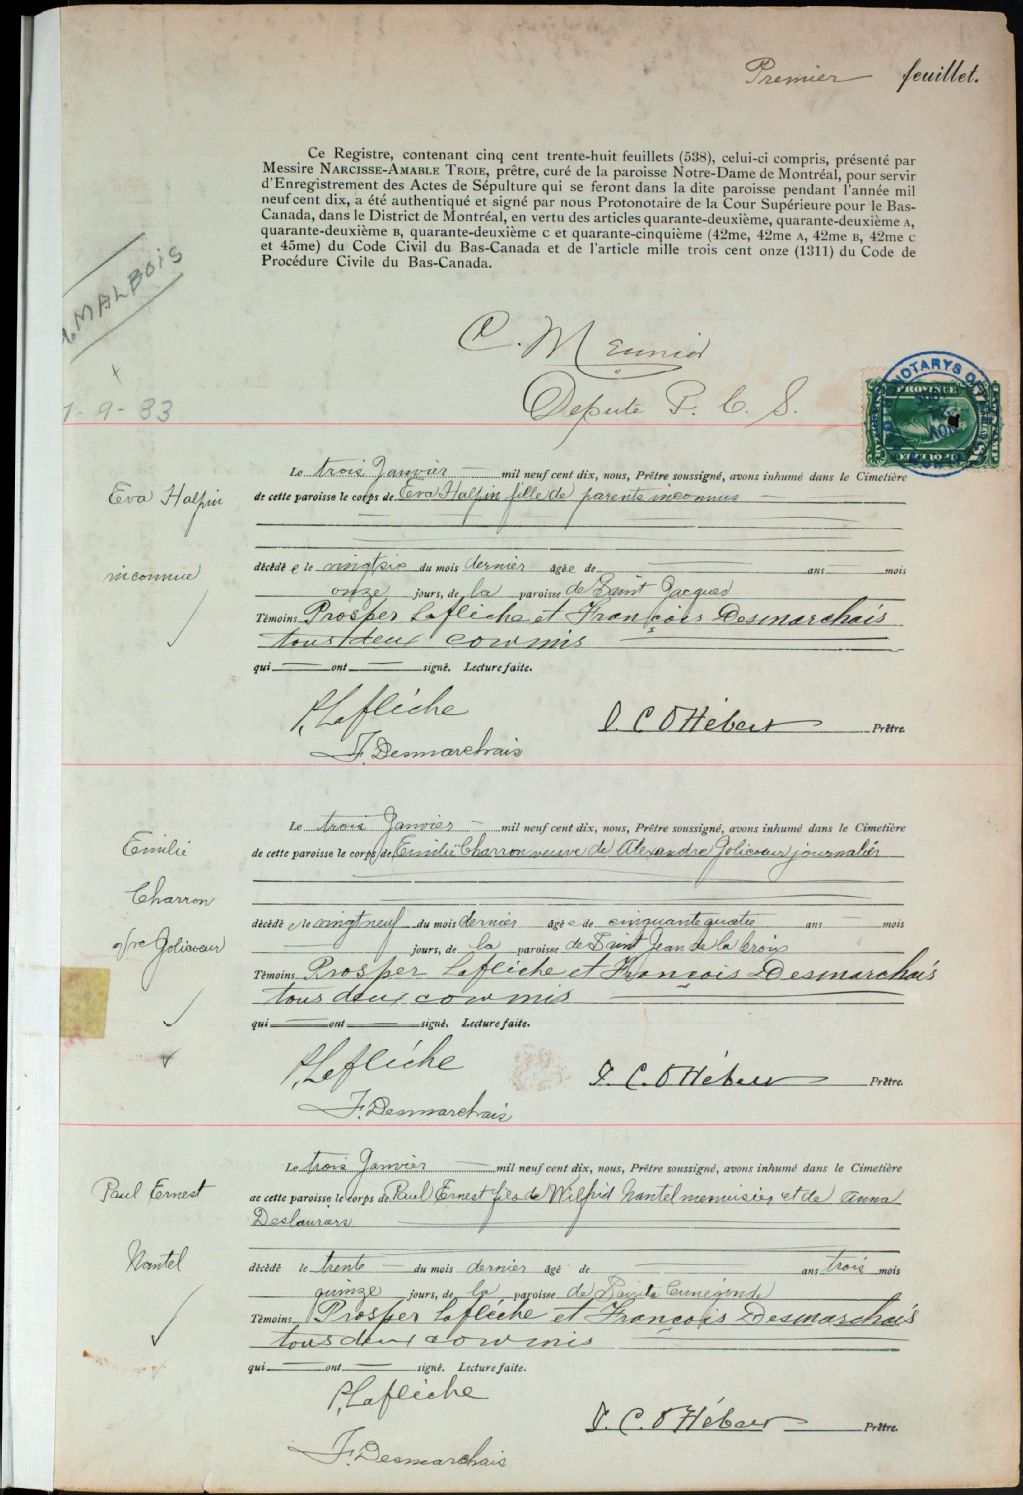 Premier feuillet.
Ce Registre, contenant cinq cent trente-huit feuillets (538), celui-ci compris, présenté par
Messire NARCISSE-AMABLE TROIE, prêtre, curé de la paroisse Notre-Dame de Montréal, pour servir
d'Enregistrement des Actes de Sépulture qui se feront dans la dite paroisse pendant l'année mil
neuf cent dix, a été authentiqué et signé par nous Protonotaire de la Cour Supérieure pour le Bas-
Canada, dans le District de Montréal, en vertu des articles quarante-deuxième, quarante-deuxième A,
quarante-deuxième B, quarante-deuxième C et quarante-cinquième (42me, 42me A, 42me B, 42me C
et 45me) du Code Civil du Bas-Canada et de l'article mille trois cent onze (1311) du Code de
Procédure Civile du Bas-Canada.
MALBOIS
9-83
C. Meunier
Depute P. C. S.
PROVINCE
Le trois Janvier mil neuf cent dix, nous, Prêtre soussigné, avons inhumé dans le Cimetière
Eva Halpin
de cette paroisse le corps de Eva Halpin fille de parents inconnus
inconnue
décédé e le vingtsix du mois dernier âgée de ans mois
onze jours, de la paroisse de Saint Jacques
Témoins Prosper Lafléche et François Desmarchais
tous deux commis
qui ont signé. Lecture faite.
P. Lafléche
J. C. O Hébert Prêtre.
F. Desmarchais
Le trois Janvier mil neuf cent dix, nous, Prêtre soussigné, avons inhumé dans le Cimetière
Emilie
de cette paroisse le corps de Emilie Charron veuve de Alexandre Jolicoeur journalier
Charron
décédé e le vingtneuf du mois dernier âgée de cinquantequatre ans mois
Jolicoeur
jours, de la paroisse de Saint Jean de la Croix
Témoins Prosper Lafléche et François Desmarchais
tous deux commis
qui ont signé. Lecture faite.
P. Lafléche
J. C. O Hébert Prêtre.
F. Desmarchais
Le trois Janvier mil neuf cent dix, nous, Prêtre soussigné, avons inhumé dans le Cimetière
Paul Ernest
de cette paroisse le corps de Paul Ernest fils de Wilfrid Nantel menuisier et de Anna
Deslauriers
Nantel
décédé le trente du mois dernier âgé de ans trois mois
quinze jours, de la paroisse de Sainte Cunégonde
Témoins Prosper Lafléche et François Desmarchais
tous deux commis
qui ont signé. Lecture faite.
P. Lafléche
J. C. O Hébert Prêtre.
F. Desmarchais